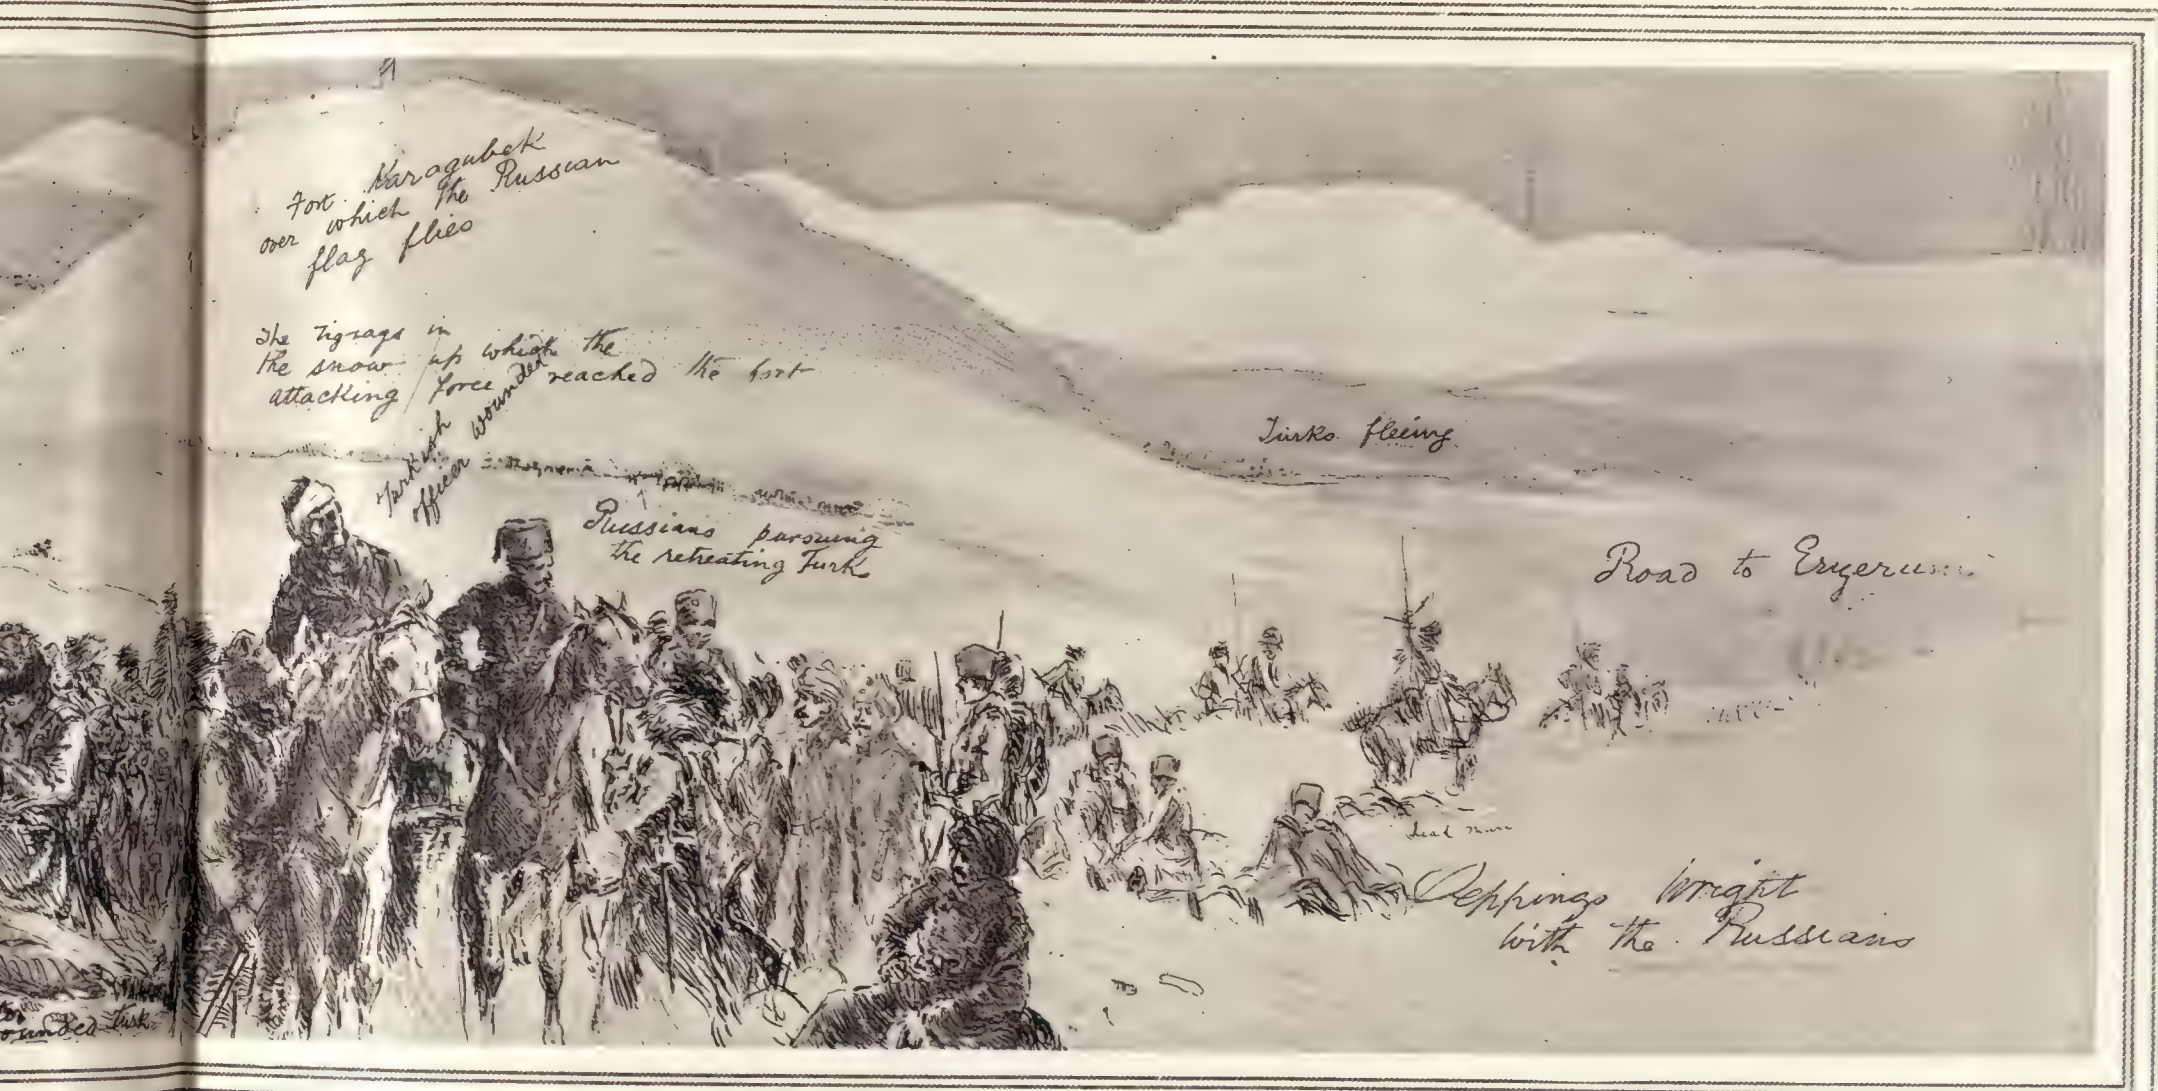 Fort Karagubek
over which the Russian
flag flies
The zigzags in
the snow up which the
attacking force reached the fort
Turkish
officer wounded
Russians pursuing
the retreating Turk
Turks fleeing
Road to Erzerum
dead man
Seppings Wright
with the Russians
wounded turk